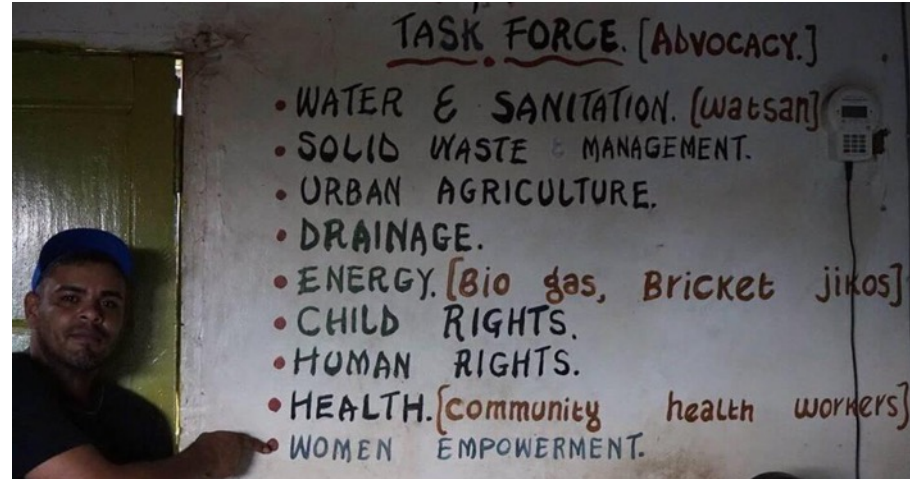 TASK FORCE. [ADVOCACY.]
• WATER & SANITATION. [watsan]
• SOLID WASTE & MANAGEMENT.
• URBAN AGRICULTURE.
• DRAINAGE.
• ENERGY. [Bio gas, Bricket jikos]
• CHILD RIGHTS.
• HUMAN RIGHTS.
• HEALTH. [community health workers]
• WOMEN EMPOWERMENT.